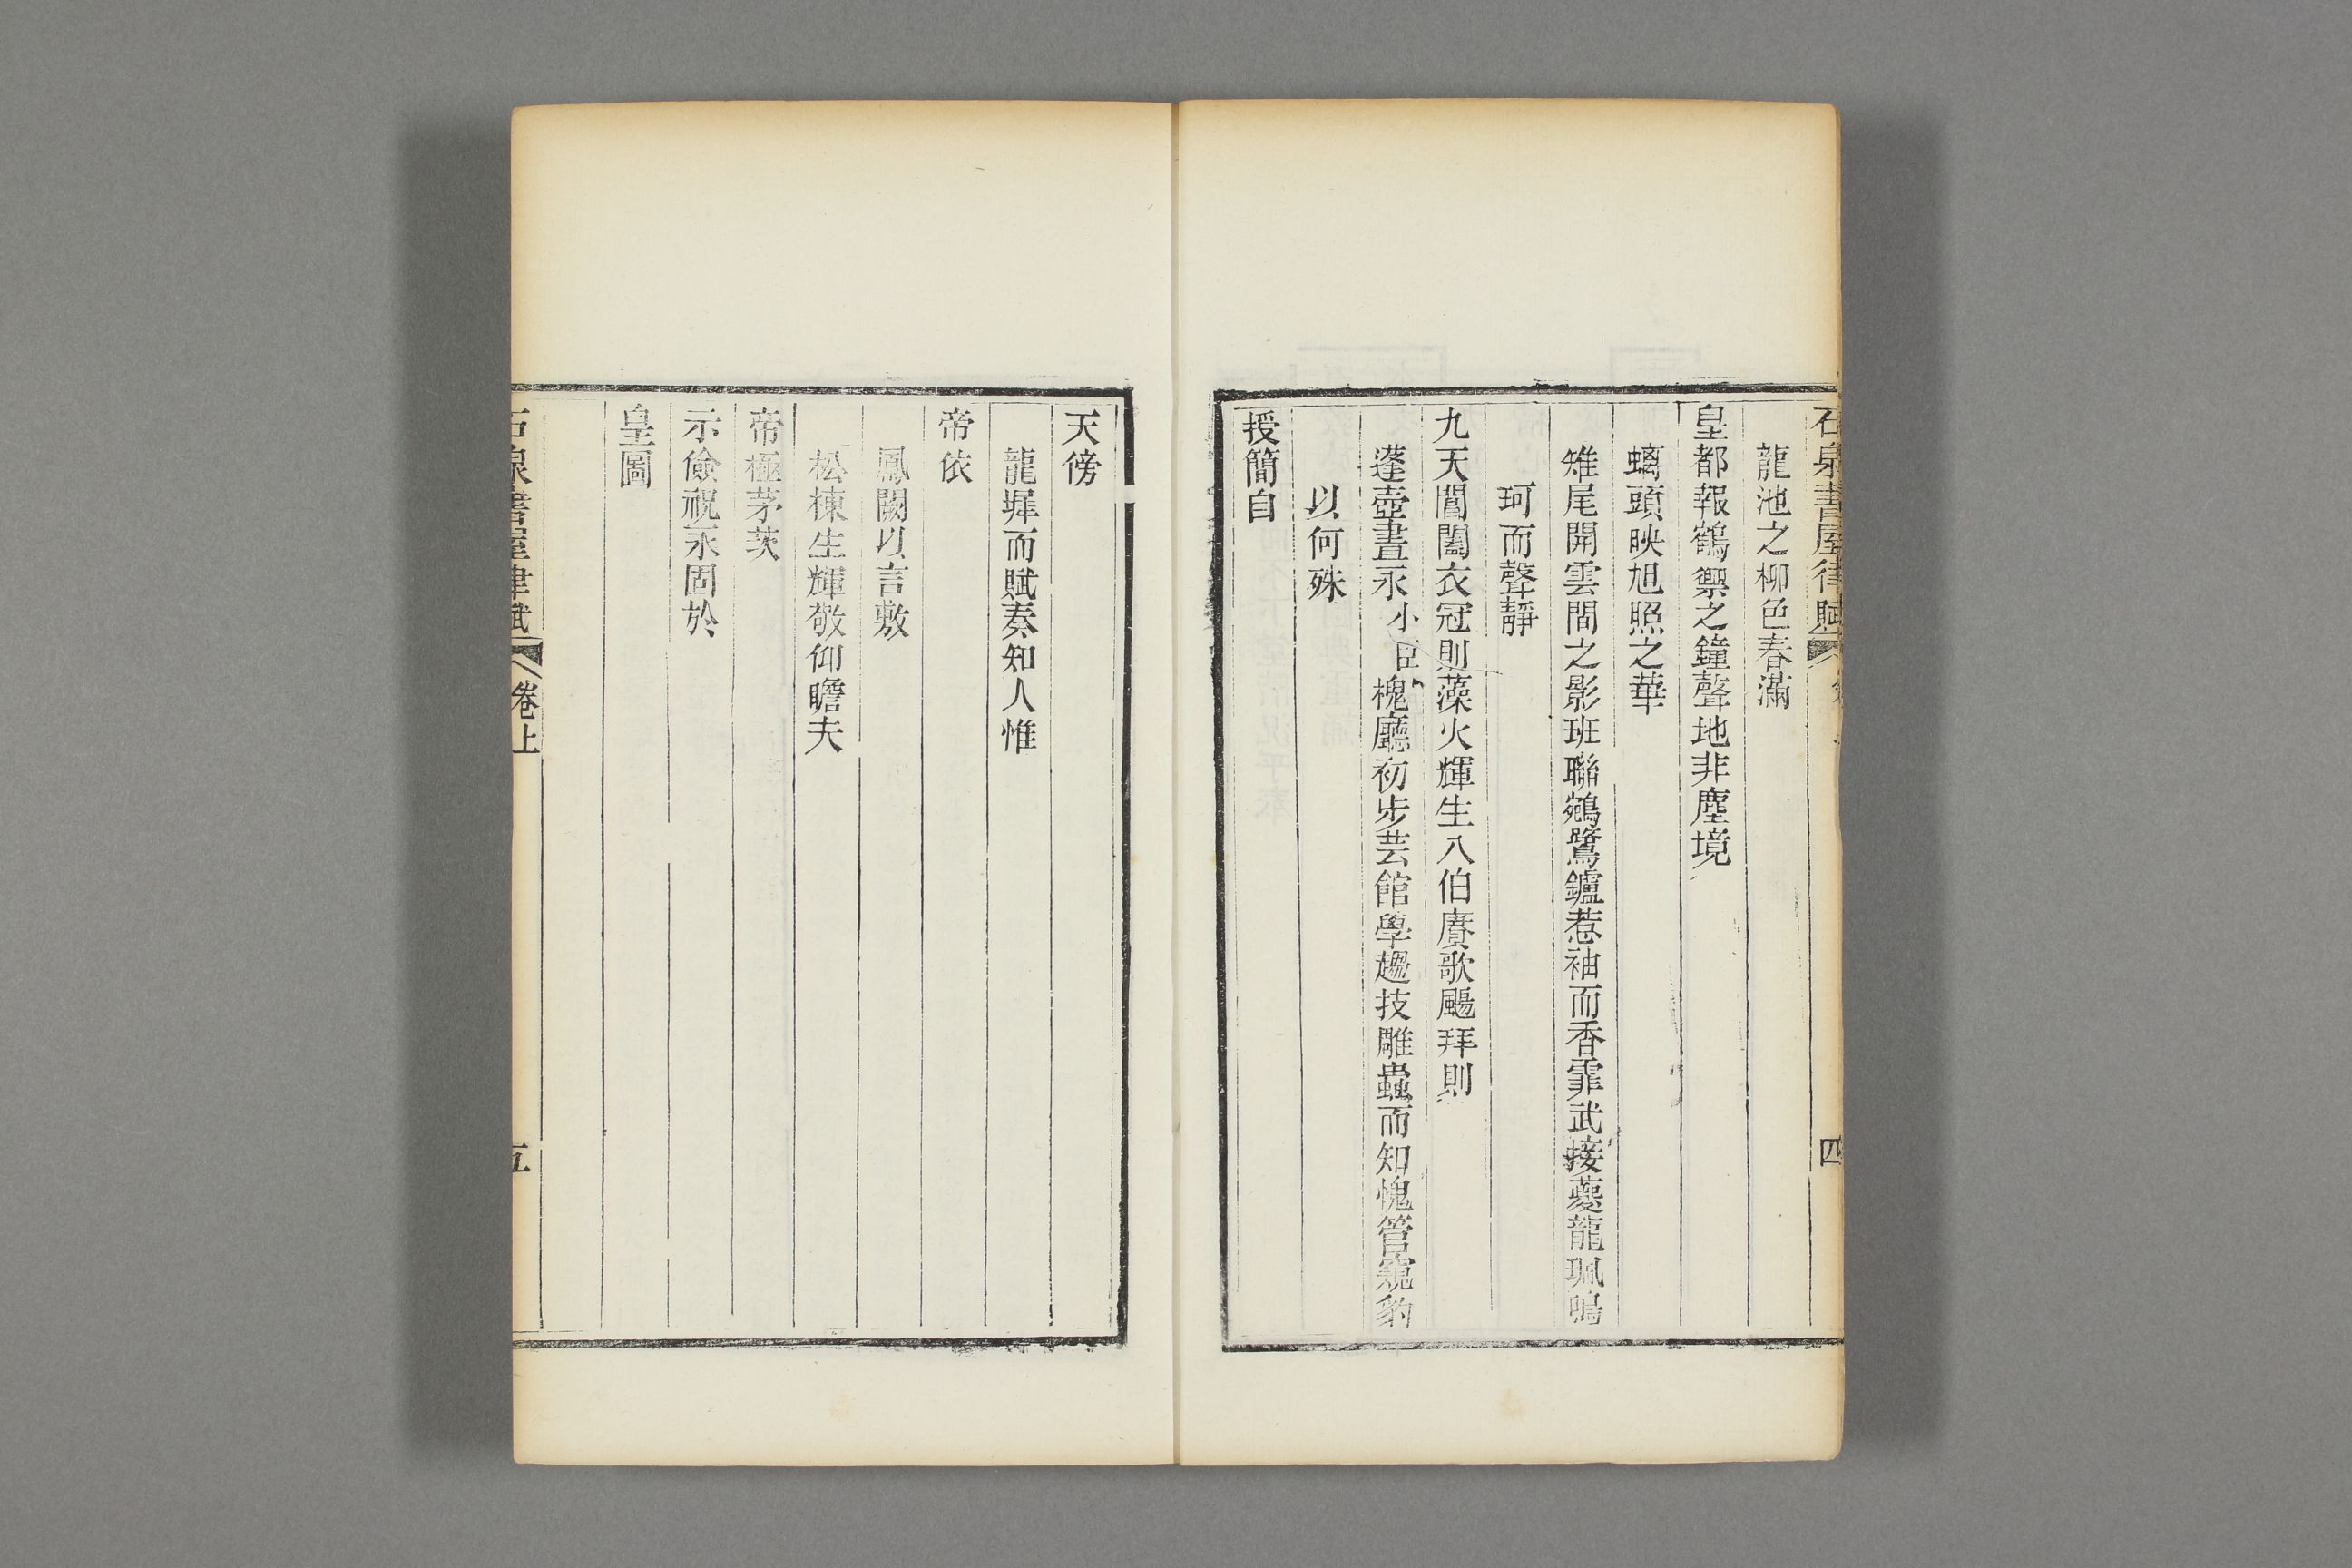 石泉書屋律賦
四
龍池之柳色春滿
皇都報鶴禦之鐘聲地非塵境
螭頭映旭照之華
雉尾開雲間之影班聯鵷鷺鑪惹袖而香霏武接夔龍珮鳴
珂而聲靜
九天閶闔衣冠則藻火輝生八伯賡歌颺拜則
蓬壺晝永小臣槐廳初步芸館學趨技雕蟲而知愧管窺豹
以何殊
授簡自
天傍
龍墀而賦奏知人惟
帝依
鳳闕以言敷
松棟生輝敬仰瞻夫
帝極茅茨
示儉祝永固於
皇圖
石泉書屋律賦
卷上
五